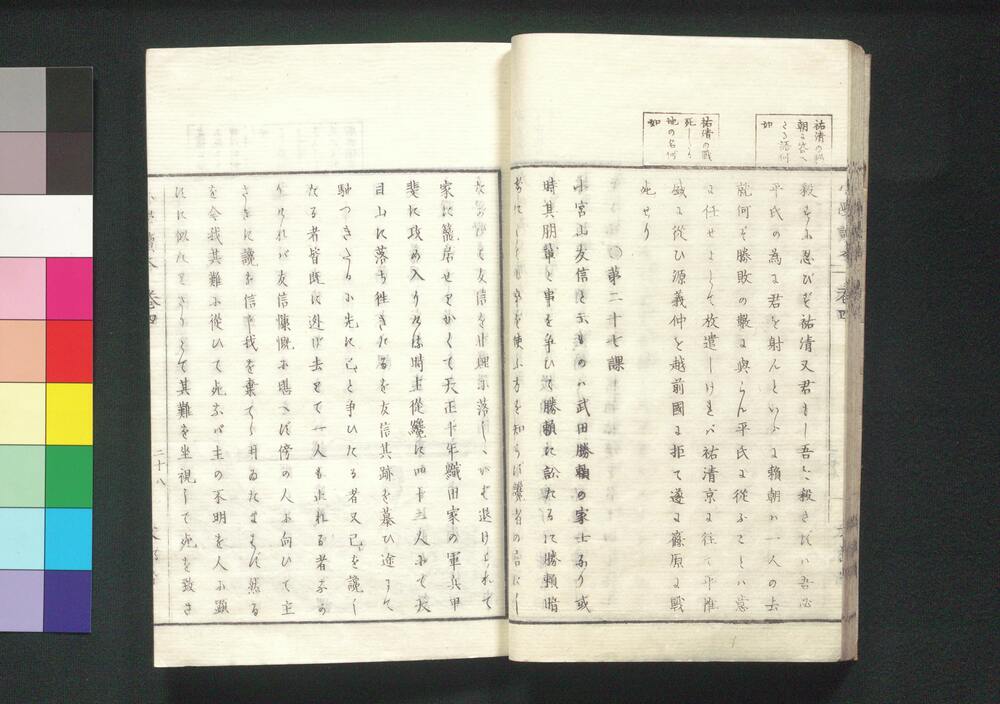 祐清の頼
朝に答へ
たる語何
如
祐清の戰
死しゝ
地の名何
如
殺すに忍びず祐清又君もし吾を殺さずバ吾必
平氏の為に君を射んといふに賴朝ハ一人の去
就何ぞ勝敗の數に與らん平氏に從ふことハ意
に任せよとて放遣しけれバ祐清京に往て平維
盛に從ひ源義仲を越前國に拒て遂に篠原に戰
死せり
○第二十七課
小宮山友信と云ものハ武田勝賴の家士なり或
時其朋輩と事を争ひて勝賴に訟たるに勝賴暗
君にして事を使ふ方を知らず讒者の言に
友信を退けられて
家に籠居せりかくて天正十年織田家の軍兵甲
斐に攻め入りける時主從纔に四十三人にて天
目山に落ち徃きたるを友信其跡を慕ひ途にて
馳つきたるに先に己と争ひたる者又己を讒し
たる者皆既に迯げ去りて一人も止れる者なか
りけれバ友信慷慨に堪へず傍の人に向ひて主
さきに讒を信じ我を棄てゝ用ゐたまはず然る
を今我其難に從ひて死なバ主の不明を人に顯
はに似たりさりとて其難を坐視して死を致さ
卷四
二十八